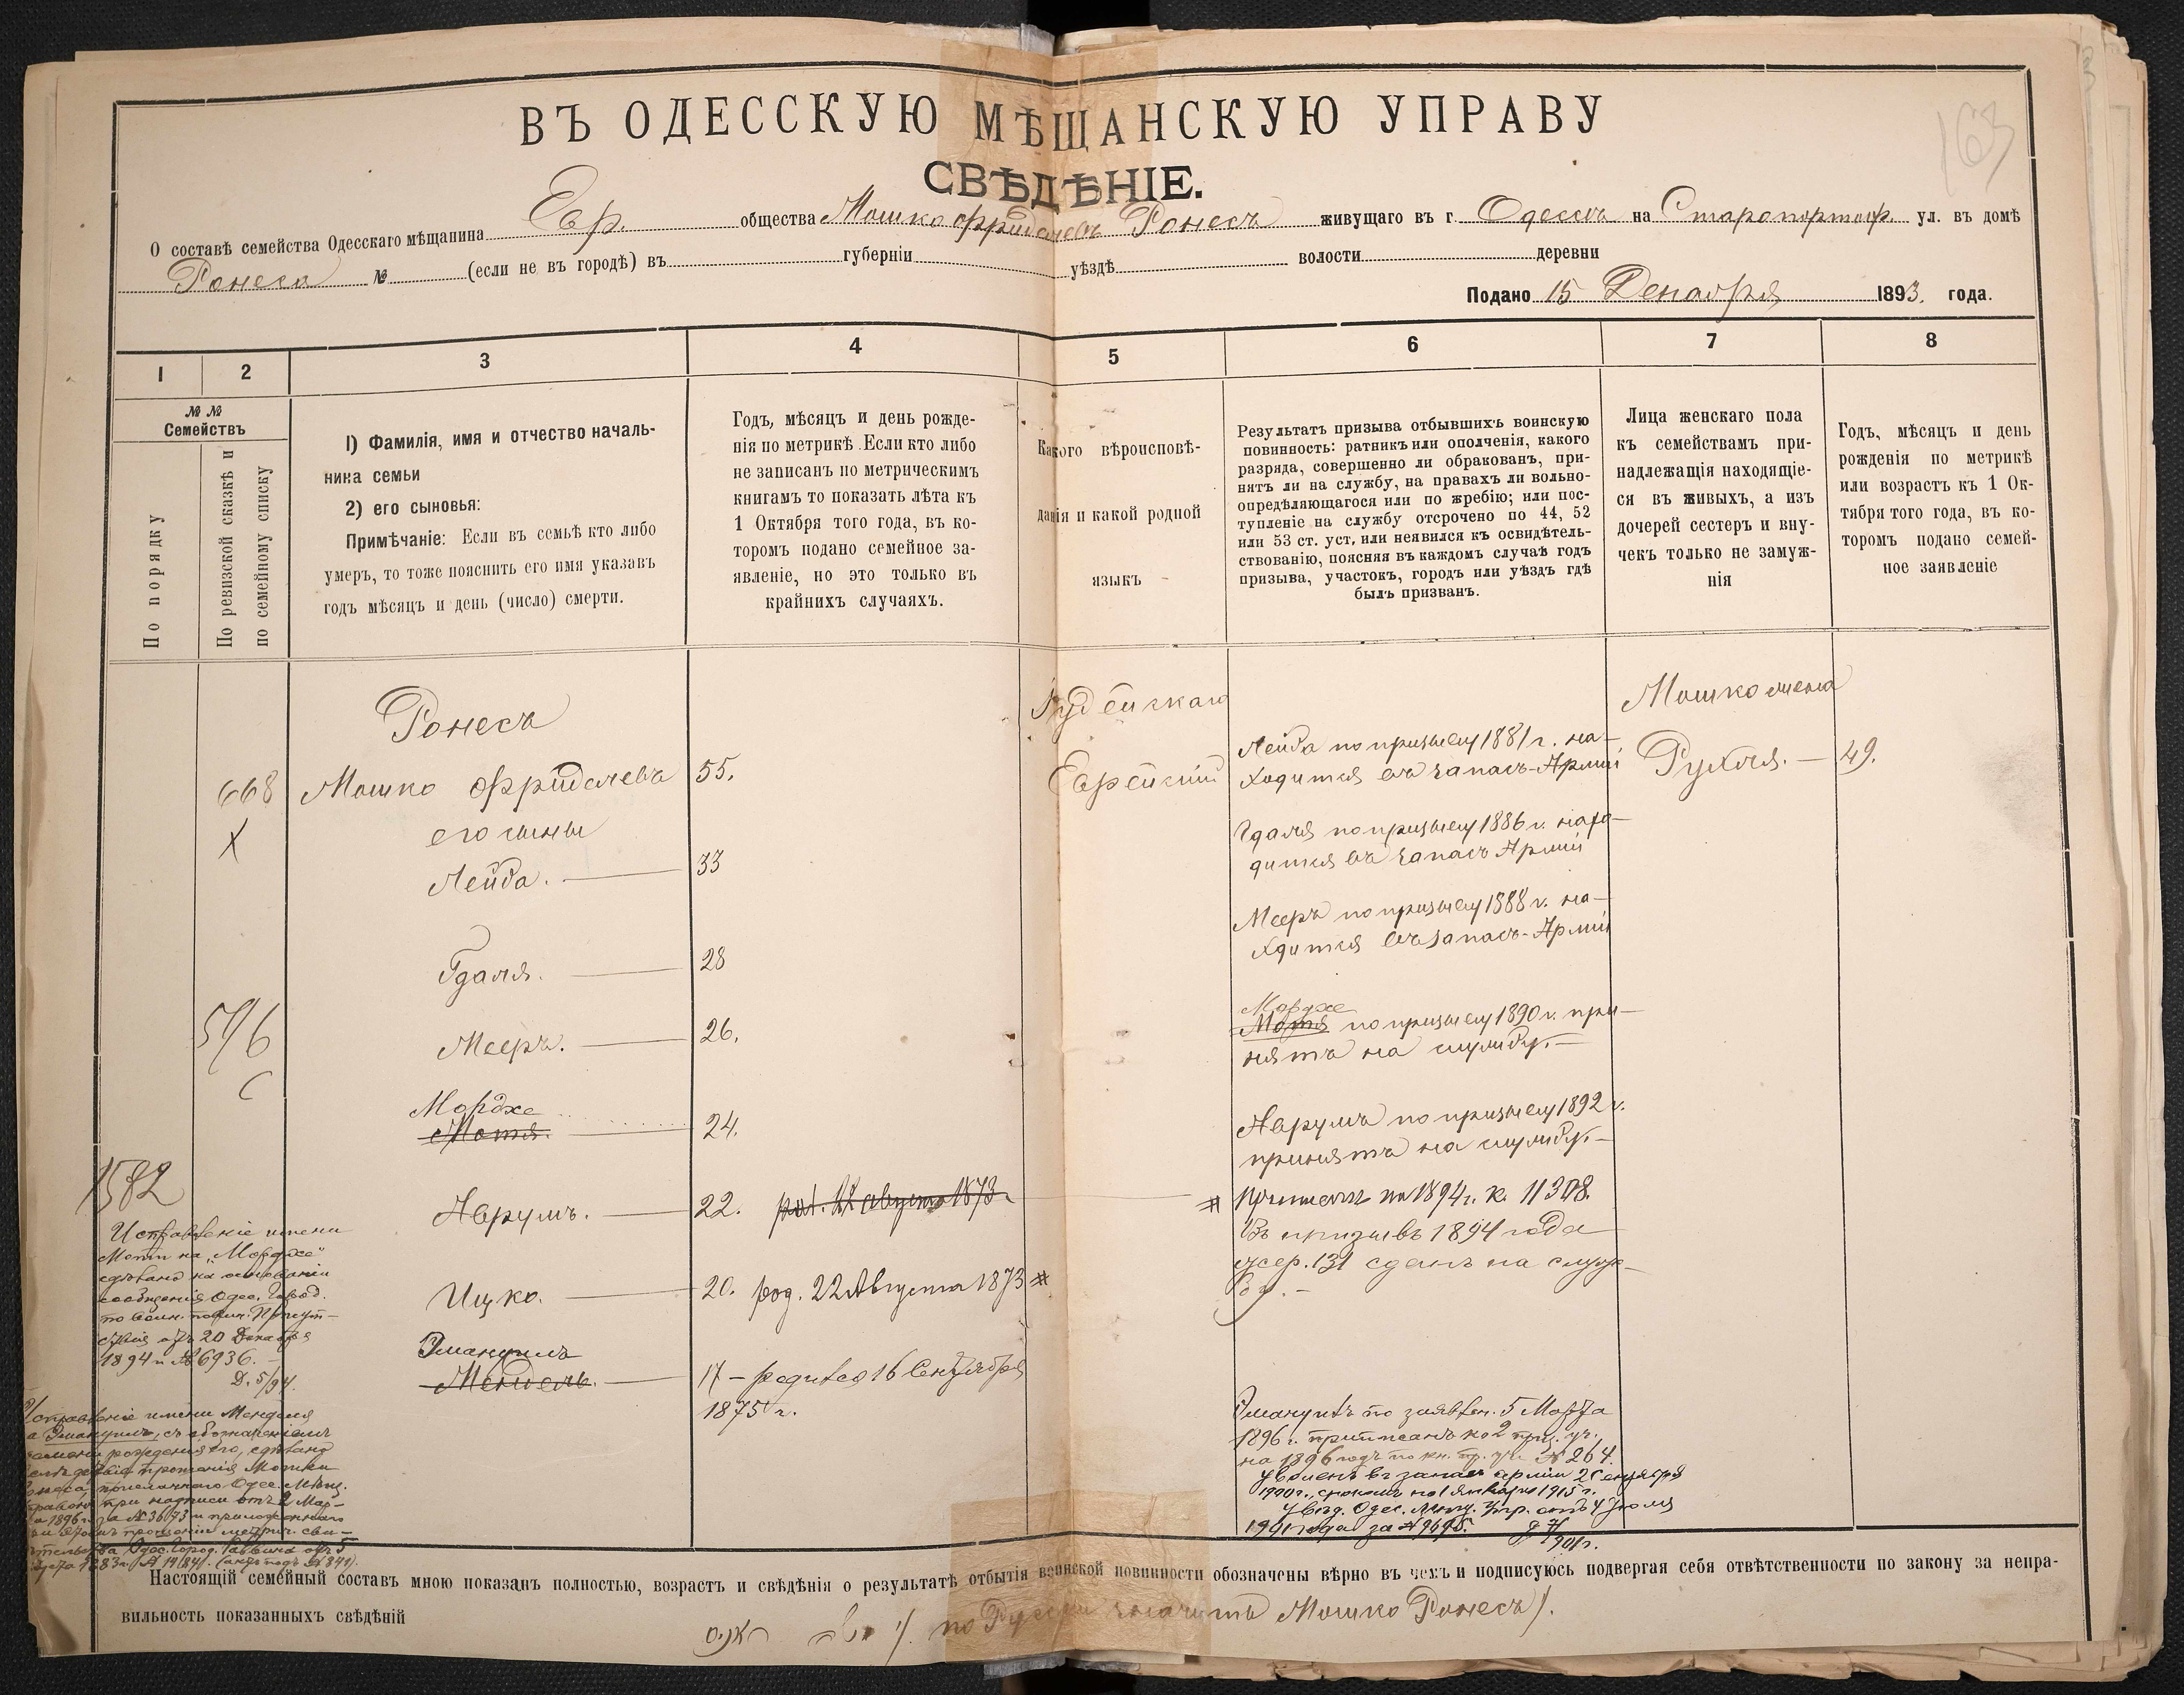 163
ВЪ ОДЕССКУЮ МѢЩАНСКУЮ УПРАВУ
СВѢДѢНІЕ.
О составѣ семейства Одесскаго мѣщанина Евр. общества Мошко Фриделевъ Ронесъ живущаго въ г. Одессѣ на Старопортоф. ул. въ домѣ
Ронеса № (если не въ городѣ) въ губерніи уѣздѣ волости деревни
Подано 15 Декабря 1893. года.
1 2 3 4 5 6 7 8
№ № Семействъ
По порядку
По ревизской сказкѣ и
по семейному списку
1) Фамилія, имя и отчество началь-
ника семьи
2) его сыновья:
Примѣчаніе: Если въ семьѣ кто либо
умеръ, то тоже пояснить его имя указавъ
годъ мѣсяцъ и день (число) смерти.
Годъ, мѣсяцъ и день рожде-
нія по метрикѣ. Если кто либо
не записанъ по метрическимъ
книгамъ то показать лѣта къ
1 Октября того года, въ ко-
торомъ подано семейное за-
явленіе, но это только въ
крайнихъ случаяхъ.
Какого вѣроисповѣ-
данія и какой родной
языкъ
Результатъ призыва отбывшихъ воинскую
повинность: ратникъ или ополченія, какого
разряда, совершенно ли обракованъ, при-
нятъ ли на службу, на правахъ ли вольно-
опредѣляющагося или по жребію; или пос-
тупленіе на службу отсрочено по 44, 52
или 53 ст. уст, или неявился къ освидѣтель-
ствованію, поясняя въ каждомъ случаѣ годъ
призыва, участокъ, городъ или уѣздъ гдѣ
былъ призванъ.
Лица женскаго пола
къ семействамъ при-
надлежащія находящіе-
ся въ живыхъ, а изъ
дочерей сестеръ и вну-
чекъ только не замуж-
нія
Годъ, мѣсяцъ и день
рожденія по метрикѣ
или возрастъ къ 1 Ок-
тября того года, въ ко-
торомъ подано семей-
ное заявленіе
668
X
596
С
1582
Исправленіе имени
Моти на „Мордхе"
сдѣлано на основаніи
сообщенія Одес. Город.
по воин. повин. Присут-
ствія отъ 20 Декабря
1894 г. № 6936. —
Д. 5/94.
Исправленіе имени Менделя
на Эмануилъ, съ обозначеніемъ
Ронесъ
Мошко Фриделевъ 55.
его сыны
Лейба. — 33
Гдаля. — 28
Мееръ. — 26.
Мордхе
Мотя. — 24.
Аврумъ. — 22. род. 22 августа 1873
Ицко. — 20. род. 22 Августа 1873 #
Эмануилъ
Мендель. — 17 — родился 16 Сентября
1875 г.
Іудейскаго
Еврейскій
Лейба по призыву 1881 г. на-
ходится въ запасъ-Арміи
Гдаля по призыву 1886 г. нахо-
дится въ запасъ Арміи
Мееръ по призыву 1888 г. на-
ходится въ запасъ-Арміи
Мордхе
Мотя по призыву 1890 г. при-
нятъ на службу. —
Аврумъ по призыву 1892 г.
принятъ на службу. —
# Приписанъ на 1894 г. к. 11308.
Въ призывъ 1894 года
жер. 131 сданъ на служ-
бу. —
Эмануилъ по заявлен. 5 Марта
1896 г. приписанъ ко 2 приз. уч.
на 1896 годъ по кн. пр. уч. № 264.
Уволенъ въ запасъ арміи 2 Сентября
1900 г., срокомъ по 1 Января 1915 г.
Увѣд. Одес. мѣщ. Упр. отъ 4 Іюля
1901 года за № 9695.
Мошко жена
Рухля. — 49.
Настоящій семейный составъ мною показанъ полностью, возрастъ и свѣдѣнія о результатѣ отбытія воинской повинности обозначены вѣрно въ чемъ и подписуюсь подвергая себя отвѣтственности по закону за непра-
вильность показанныхъ свѣдѣній
по Русски значитъ Мошко Ронесъ/.